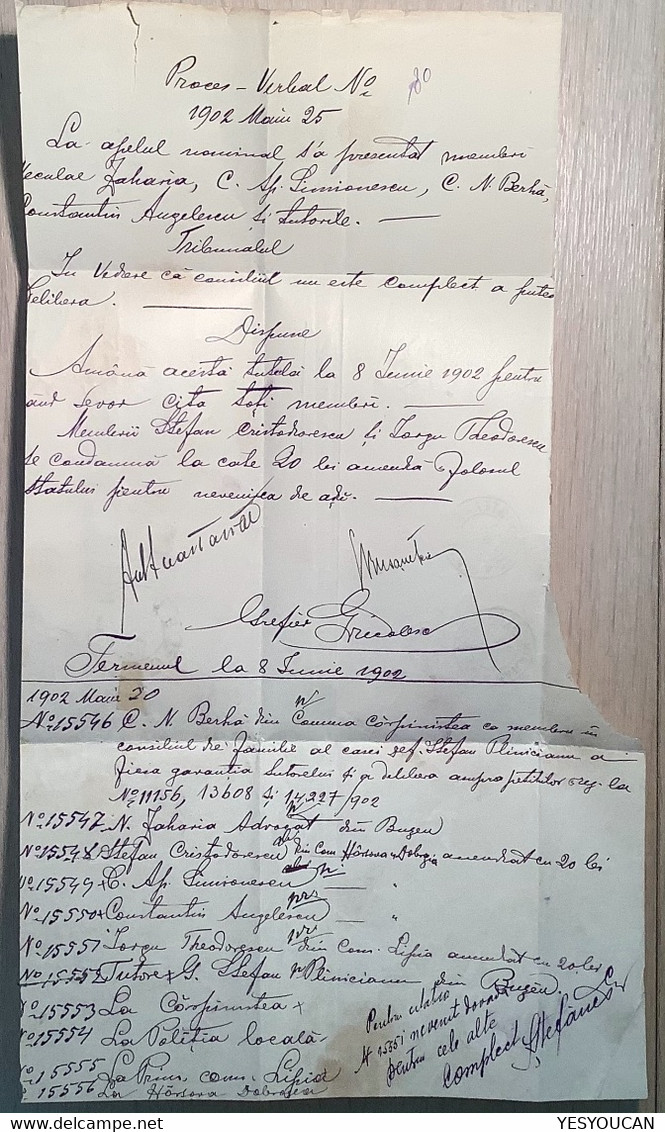 Proces-Verbal No 80
1902 Maiu 25
La apelul nominal s'a presentat membri
Neculae Zaharia, C. Ap. Simionescu, C. N. Berhă,
Constantin Angelescu și tutorile. —
Tribunalul
In vedere că consiliul nu este complect a putea
delibera. —
Dispune
Amână acestă tutelă la 8 Iunie 1902 pentru
când sevor cita toți membri. —
Membrii Ștefan Cristodorescu și Iorgu Theodorescu
se condamnă la câte 20 lei amendă folosul
Statului pentru nevenirea de adi. —
Grefier Grecolesc
Termenul la 8 Iunie 1902
1902 Maiu 30
No 15546 C. N. Berhă din Comuna Cărpinistea ca membru în
consiliul de familie al casei def. Ștefan Pliniceanu a
garantia tutorelui și a delibera asupra petitilor reg. la
No 11156, 13608 și 14227/902
No 15547 N. Zaharia Advogat din Buzeu
No 15548 x Ștefan Cristodorescu din Com Hârsova Dobrogia amendat cu 20 lei
No 15549 x C. Ap. Simionescu — "
No 15550 x Constantin Angelescu — "
No 15551 Iorgu Theodorescu din Com. Lipia amendat cu 20 lei
No 15552 Tutore x G. Ștefan Pliniceanu din Buzeu.
No 15553 La Cărpinistea x
No 15554 La Poliția locală
No 15555 La Prim. com. Lipia
No 15556 La Hârsova Dobrogea
Pentru citatia
No 15551 nevenit dovada
pentru cele alte
complect
Ștefănescu
YESYOUCAN